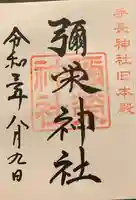 手長神社旧本殿
彌栄神社
令和 年八月九日